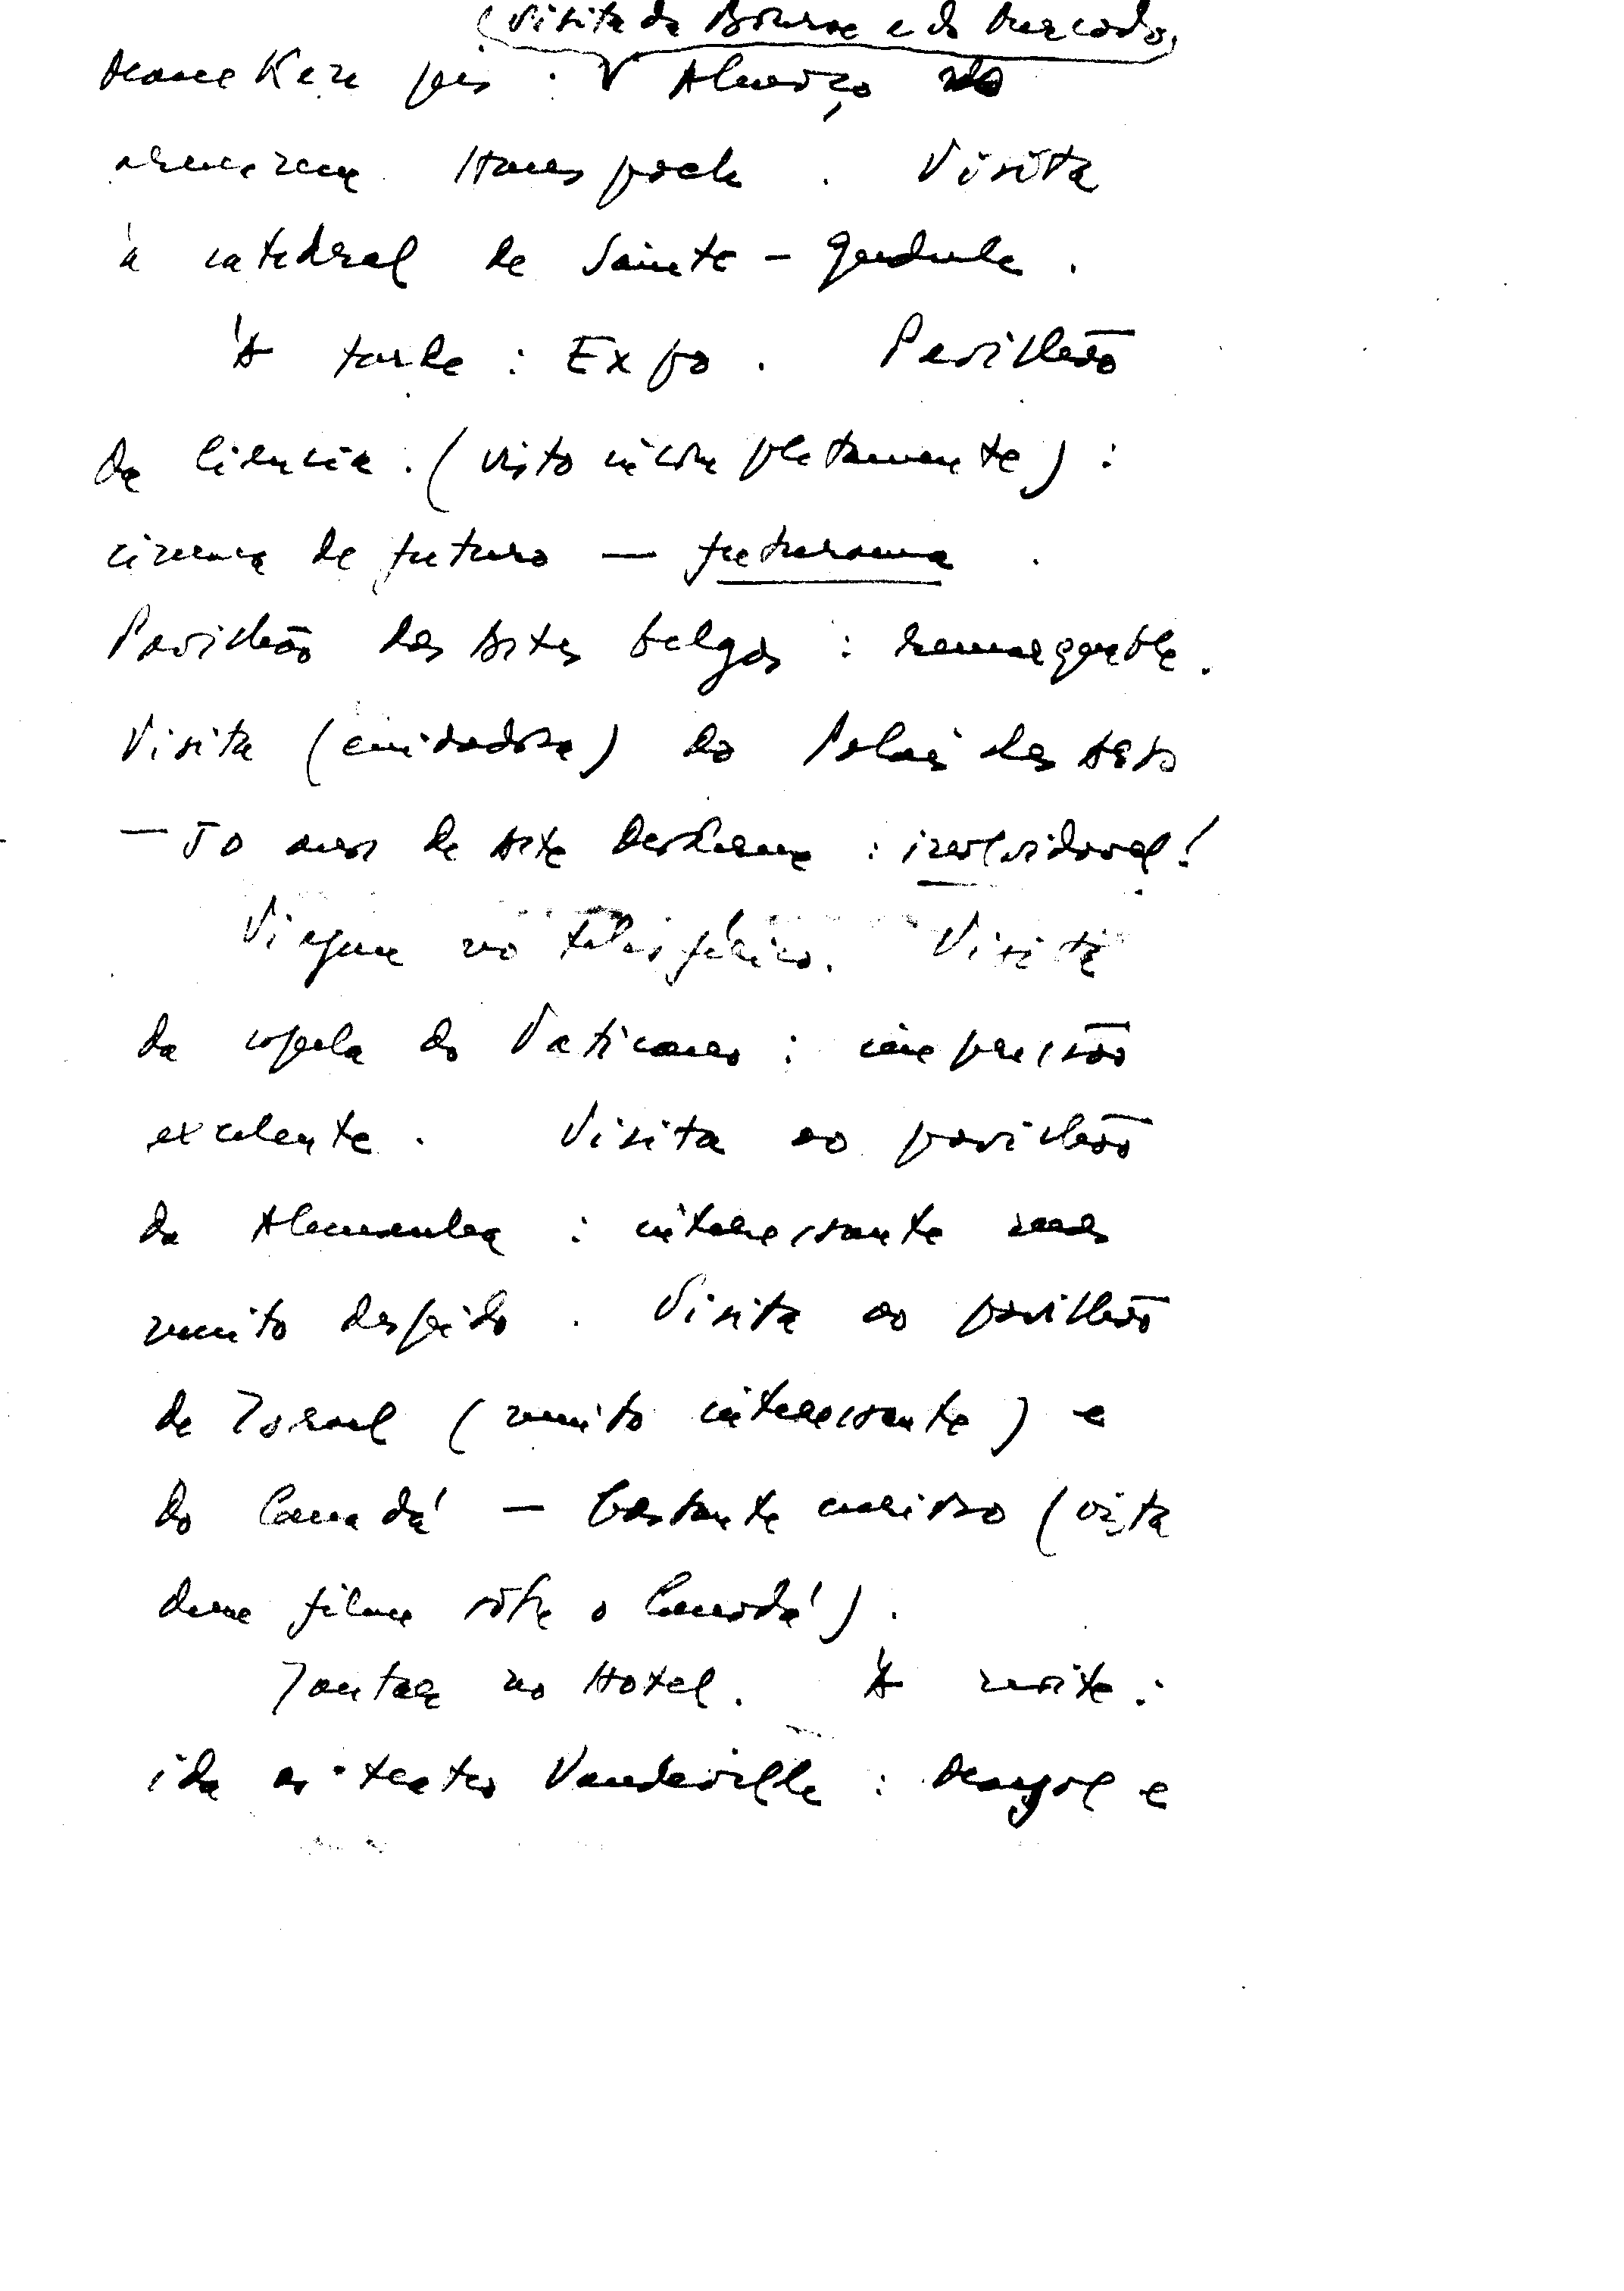 (Visita da Bourse e do Mercado)
Manneken pis. Almoço no
armazem. Visita
à catedral de Sainte-Gudule.
À tarde: Expo. Pavilhão
da Ciencia. (visto incompletamente):
cinema de futuro — futurama.
Pavilhão das Artes belgas: remarquable.
Visita (cuidadosa) do Palais des Arts
— 50 anos de Arte Moderna: inolvidavel!
Viagem no teleférico. Visita
da cupula do Vaticano: impressão
excelente. Visita ao pavilhão
da Alemanha: interessante mas
muito despido. Visita ao pavilhão
de Israel (muito interessante) e
do Canadá — bastante curioso (vista
dum filme sôbre o Canadá).
Jantar no Hotel. À noite:
ida ao teatro Vaudeville: e